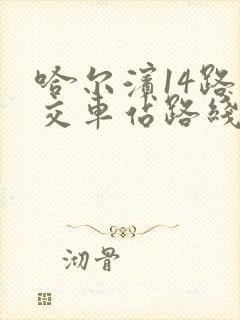 哈尔滨14路
交车站路线
沏骨